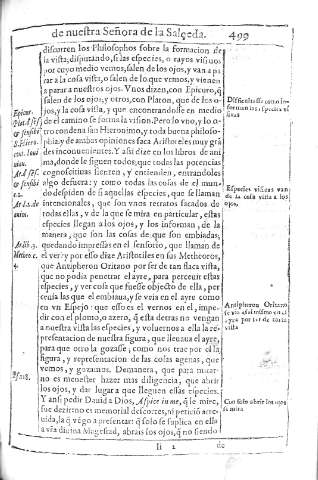 de nuestra Señora de la Salçeda. 499
discurren los Philosophos sobre la formacion de
la vista, disputando, si las especies, o rayos visiuos
por cuyo medio vemos, salen de los ojos, y van a pa-
rar a la cosa vista, o salen de lo que vemos, y vienen
a parar a nuestros ojos. Vnos dizen, con Epicuro, q̃
salen de los ojos; y otros, con Platon, que de los o-
jos, y la cosa vista, y que encontrandose en medio
del camino se forma la vision. Pero lo vno, y lo o-
tro condena san Hieronimo, y toda buena philoso-
phia; y de ambos opiniones saca Aristoteles muy grã
des inconuenientes. Y asi dize en los libros de ani-
ma, donde le siguen todos, que todas las potencias
cognoscitiuas sienten, y entienden, entrandoles
algo defuera: y como todas las cosas de el mun-
do despiden de si aquellas especies, que se llaman
intencionales, que son vnos retratos sacados de
todas ellas, y de la que se mira en particular, estas
especies llegan a los ojos, y los informan, de la
manera, que son las cosas de que son embiadas,
quedando impressas en el sensorio, que llaman de
el ver: y por esso dize Aristotiles en sus Metheoros,
que Antipheron Oritano por ser de tan flaca vista,
que no podia penetrar el ayre, para percibir estas
especies, y ver cosa que fuesse objecto de ella, per
cebia las que el embiaua, y se veia en el ayre como
en vn Espejo: que esso es el vernos en el, impe-
dir con el plomo, o azero, q̃ esta detras no vengan
a nuestra vista las especies, y voluernos a ella la re-
presentacion de nuestra figura, que lleuaua el ayre,
para que otro la gozasse, como nos trae por ella
figura, y representacion de las cosas agenas, que
vemos, y gozamos. Demanera, que para mirar
no es menester hazer mas diligencia, que abrir
los ojos, y dar lugar a que lleguen essas especies.
Y ansi pedir Dauid a Dios, Aspice in me, q̃ le mire,
fue dezir
vna diuina Magestad, abrais los ojos, q̃ no siendo
Ii 2 de
Epicur.
S. Hiero.
Especies visiuas van
de la cosa vista a los
ojos.
Antipheron Oritano,
vista
Con solo abrir los ojos
se mira